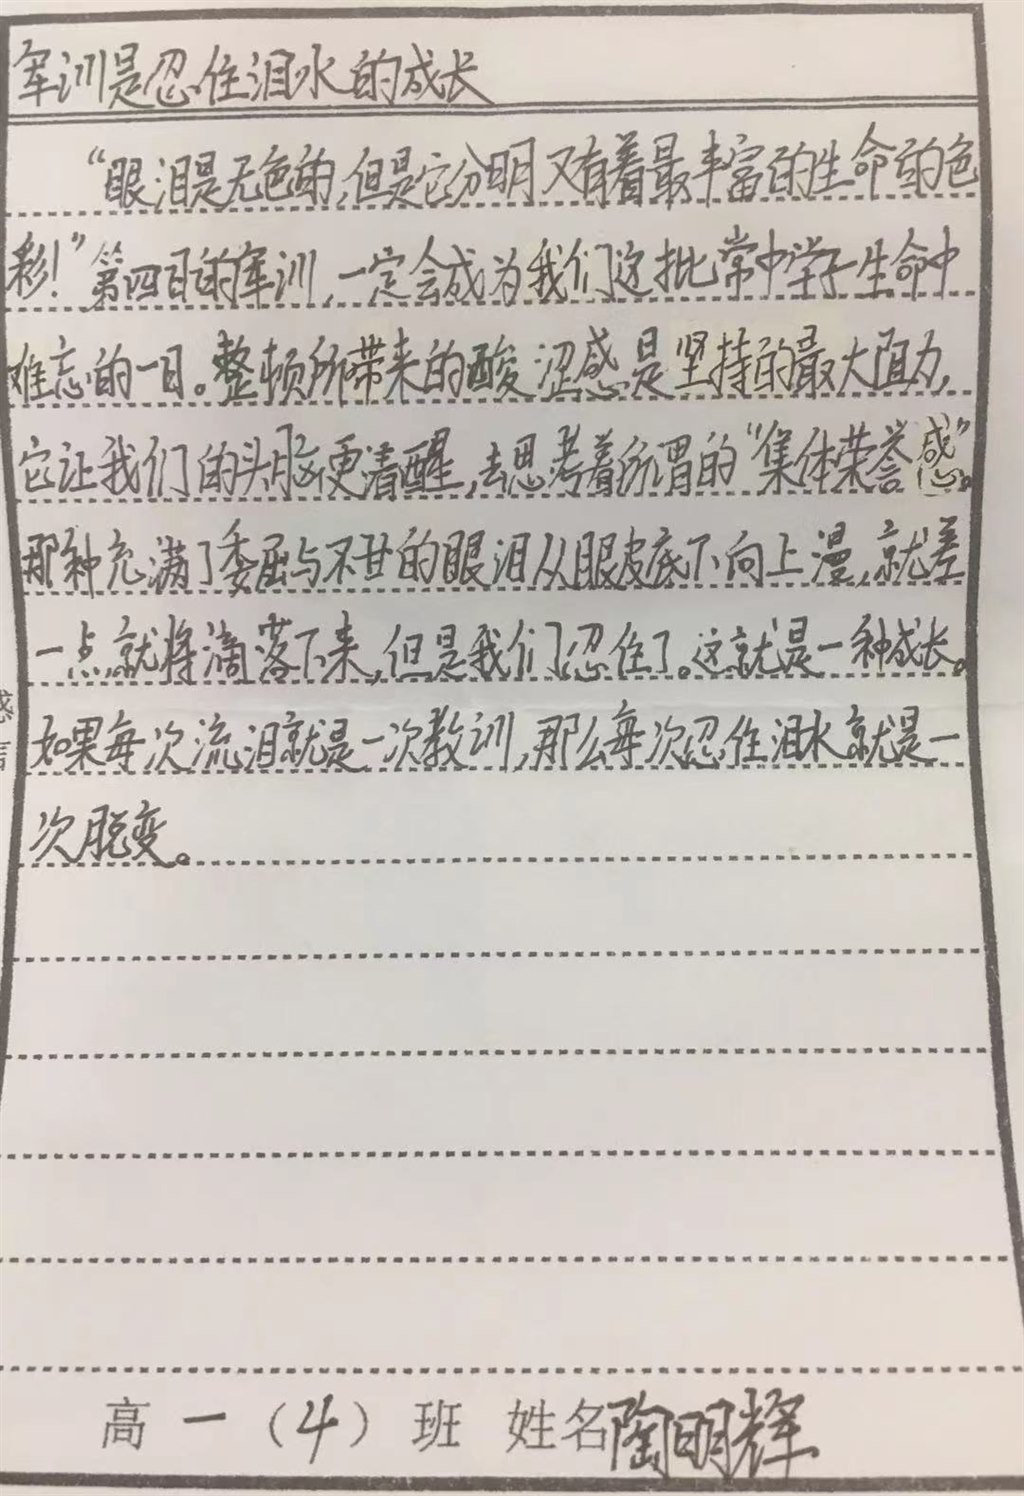 军训是忍住泪水的成长
“眼泪是无色的，但是它分明又有着最丰富的生命的色
彩！”第四日的军训，一定会成为我们这批常中学子生命中
难忘的一日。整顿所带来的酸涩感是坚持的最大阻力，
它让我们的头脑更清醒，去思考着所谓的“集体荣誉感”。
那种充满了委屈与不甘的眼泪从眼皮底下向上漫，就差
一点就将滴落下来，但是我们忍住了。这就是一种成长。
如果每次流泪就是一次教训，那么每次忍住泪水就是一
次脱变。
高一（4）班 姓名陶明辉